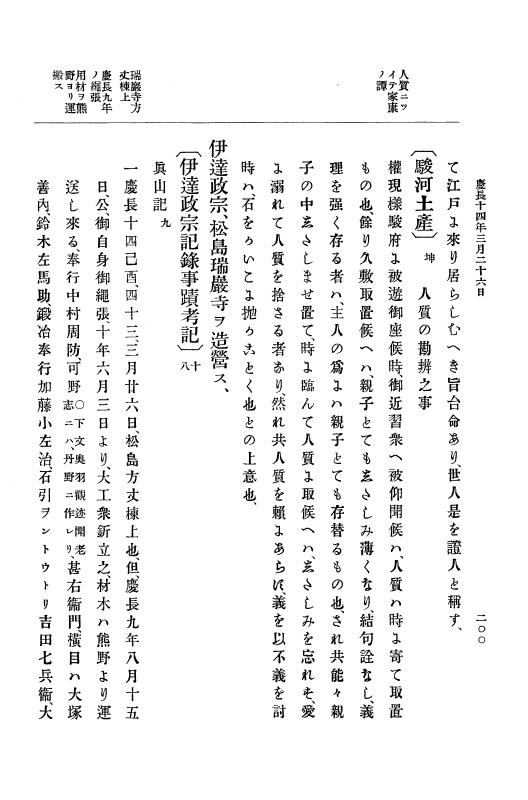 慶長十四年三月二十六日
二〇〇
人質ニツ
イテ家康
ノ譚
瑞巖寺方
丈棟上
慶長九年
ノ繩張
用材ヲ熊
野ヨリ運
搬ス
て江戸よ來り居らしむへき旨台命あり、世人是を證人と稱す、
〔駿河土産〕坤 人質の勘辨之事
權現樣駿府よ被遊御座候時、御近習衆へ被仰聞候ハ、人質ハ時よ寄て取置
もの也、餘り久敷取置候へハ、親子とてもゑさしみ薄くなり、結句詮なし、義
理を强く存る者ハ、主人の爲よハ親子とても存替るもの也、され共能々親
子の中ゑさしませ置て、時よ臨んて人質よ取候へハ、ゑさしみを忘れそ、愛
よ溺れて人質を捨さる者あり、然れ共人質を賴よあらに、義を以不義を討
時ハ、石をゟいこよ抛ゟことく也との上意也、
伊達政宗、松島瑞巖寺ヲ造營ス、
〔伊達政宗記錄事蹟考記〕十八
眞山記九
一慶長十四己酉四十三、三月廿六日、松島方丈棟上也、但、慶長九年八月十五
日公、御自身御繩張十年六月三日より、大工衆新立之、材木ハ熊野より運
送し來る、奉行中村周防、可野〇下文奧羽觀迹聞老志ニハ、丹野ニ作レリ、甚右衞門、橫目ハ大塚
善內、鈴木左馬助、鍛冶奉行加藤小左治、石引ヲントウトリ吉田七兵衞、大